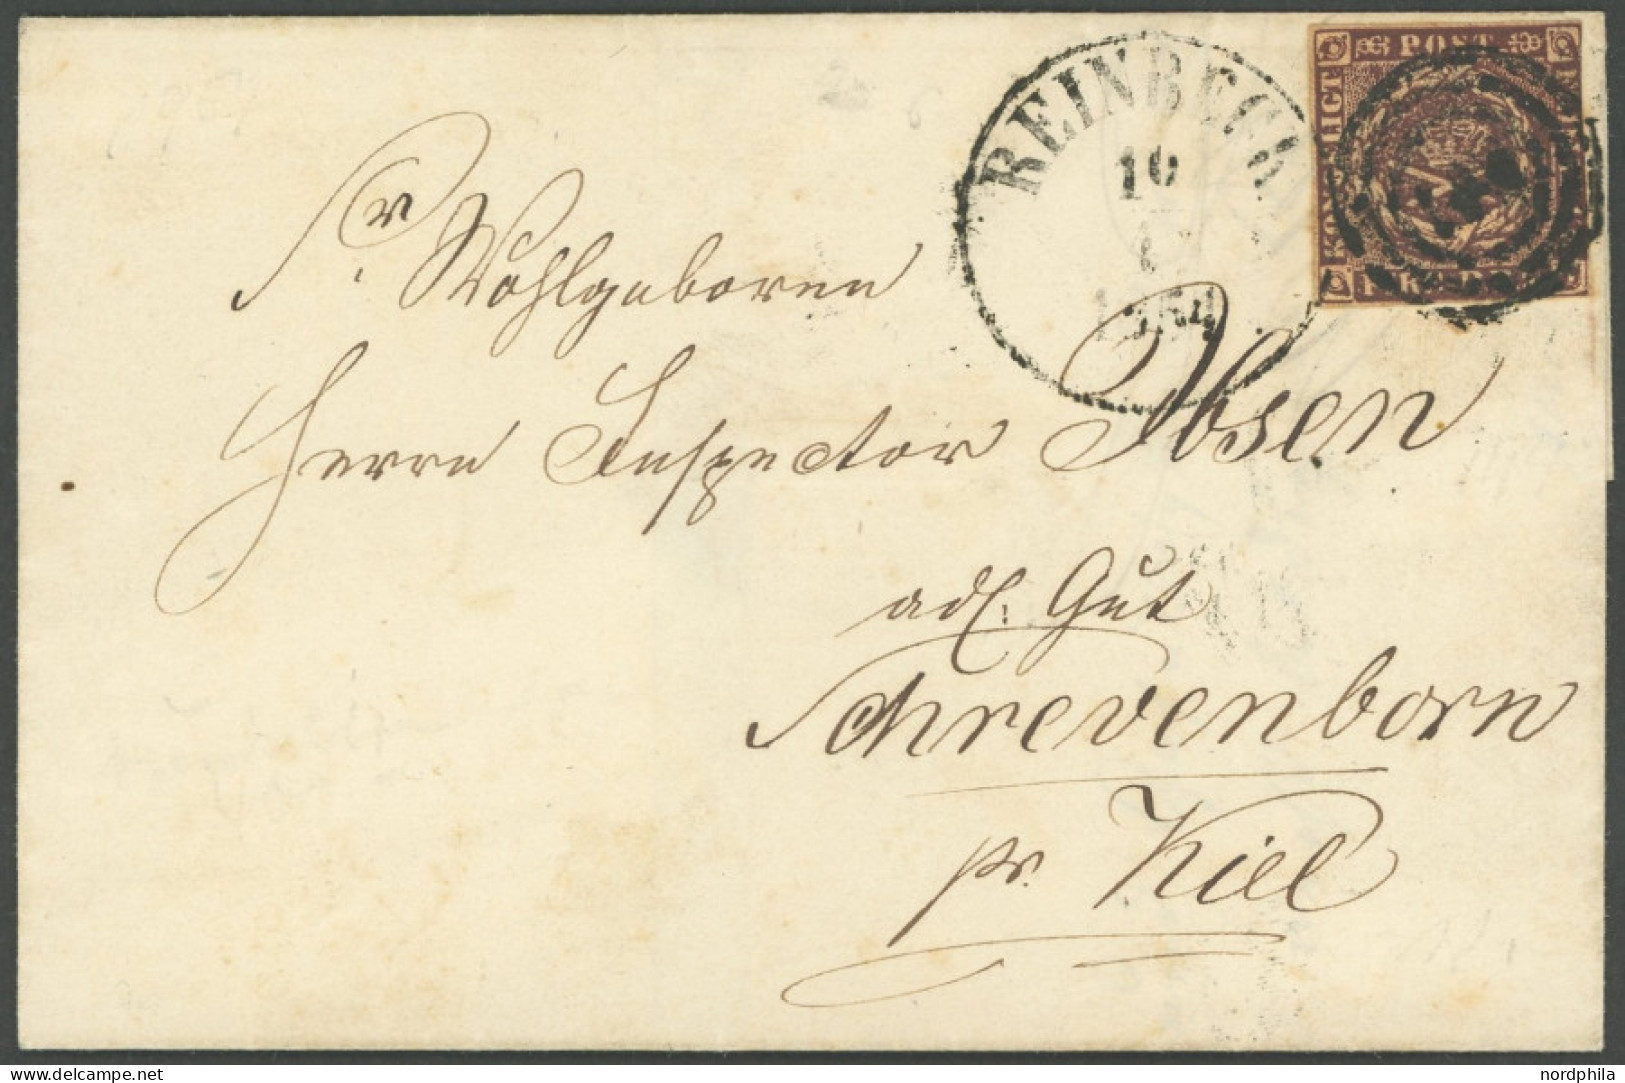 REINBECK
10
KONGELIGT POST
Sr Wohlgeboren
Herrn Inspector Ibsen
adl. Gut
Schrevenborn
pr. Kiel
www.delcampe.net
nordphila